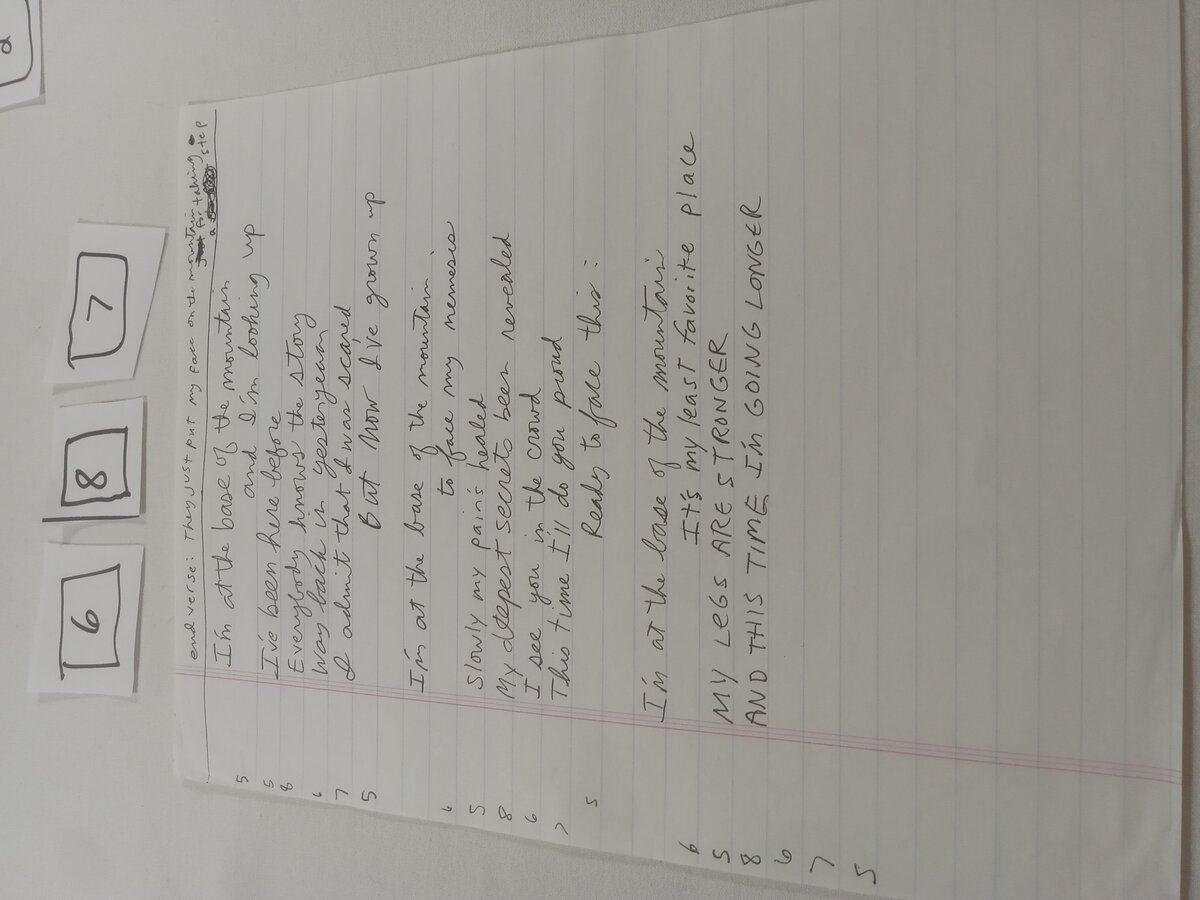 2
6
8
7
end verse: They just put my face on the mountain
for taking a step
I'm at the base of the mountain
and I'm looking up
5
I've been here before
5
Everybody knows the story
8
Way back in yesteryear
6
I admit that I was scared
7
But now I've grown up
5
I'm at the base of the mountain
to face my nemesis
6
Slowly my pain's healed
5
My deepest secrets been revealed
8
I see you in the crowd
6
This time I'll do you proud
7
Ready to face this:
5
I'm at the base of the mountain
It's my least favorite place
6
MY LEGS ARE STRONGER
5
AND THIS TIME I'M GOING LONGER
8
6
7
5